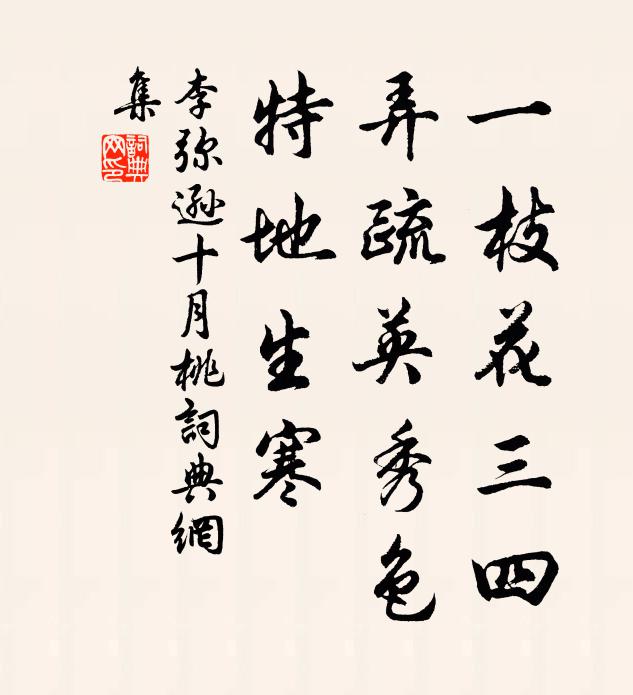 一枝花三四
弄疏英秀色
特地生寒
李弥遜十月桃詞典網
集
詞典
网印